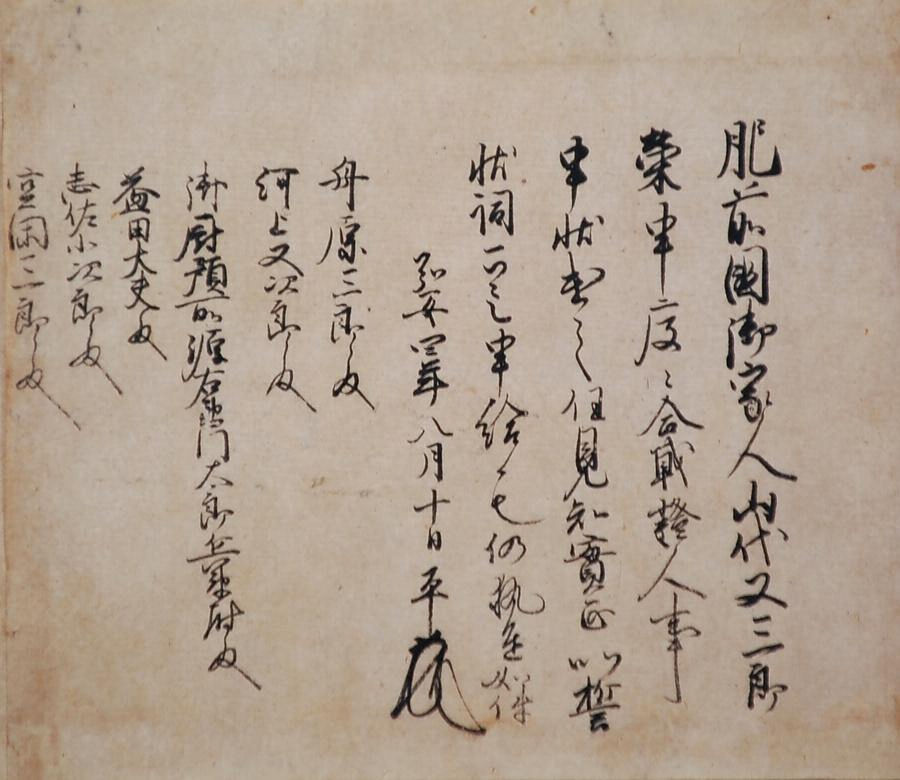 肥前國御家人山代又三郎
榮申度々合戰證人事
申状書之任見知實正以誓
状詞可之申給也仍執達如件
弘安四年八月十日平
舟原三郎殿
河上又次郎殿
御厨預所源右衛門太郎兵衛尉殿
益田大夫殿
志佐小次郎殿
三郎殿